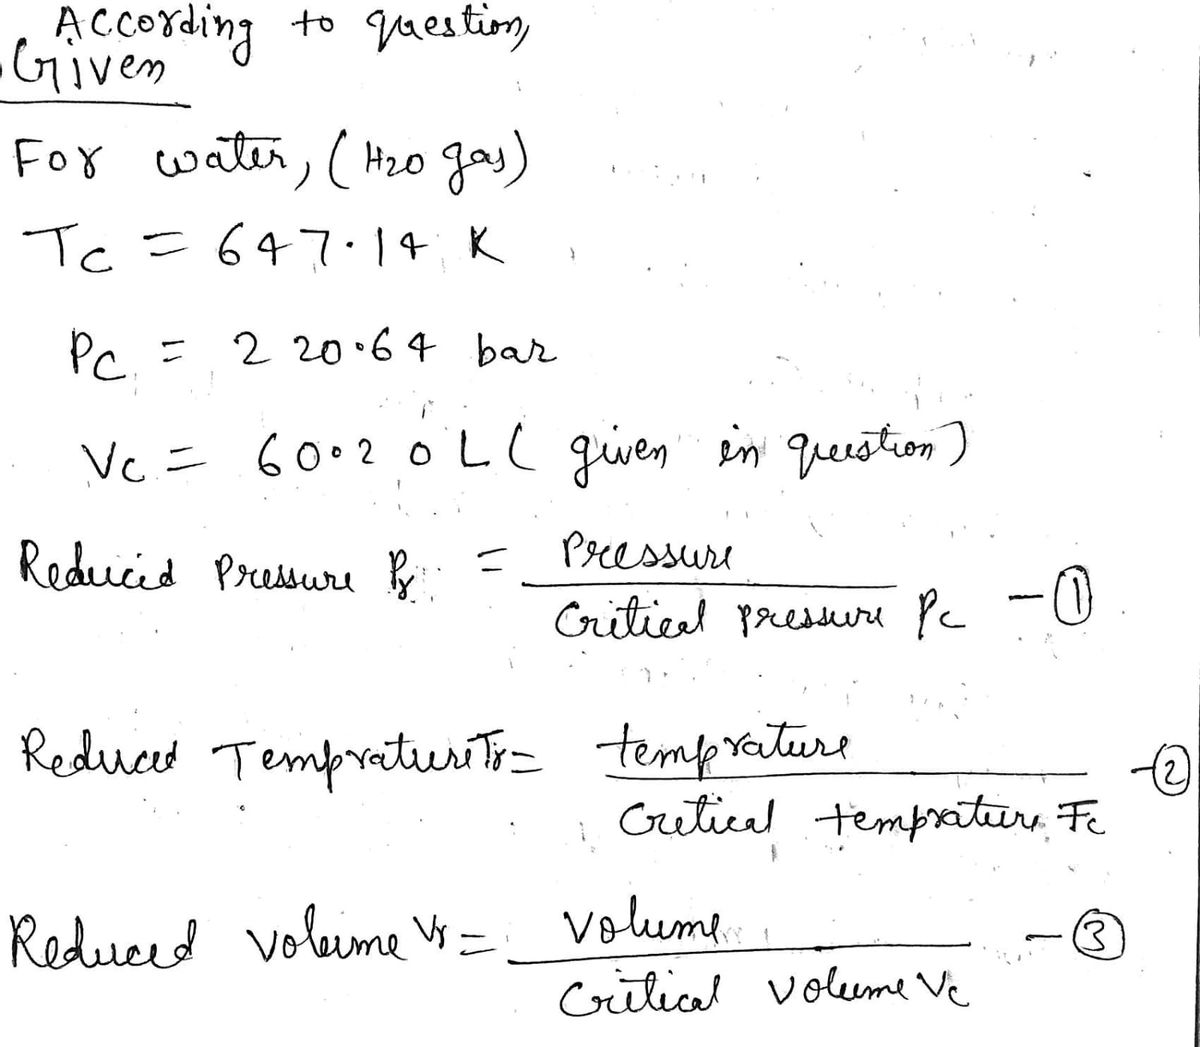 According to question,
Given
For water, (H2O gas)
Tc = 647.14 K
Pc = 220.64 bar
Vc = 60.20 L (given in question)
Reduced Pressure Pr = Pressure
Critical pressure Pc - ①
Reduced Temprature Tr = temprature
Critical temprature Tc - ②
Reduced volume Vr = volume
Critical volume Vc - ③